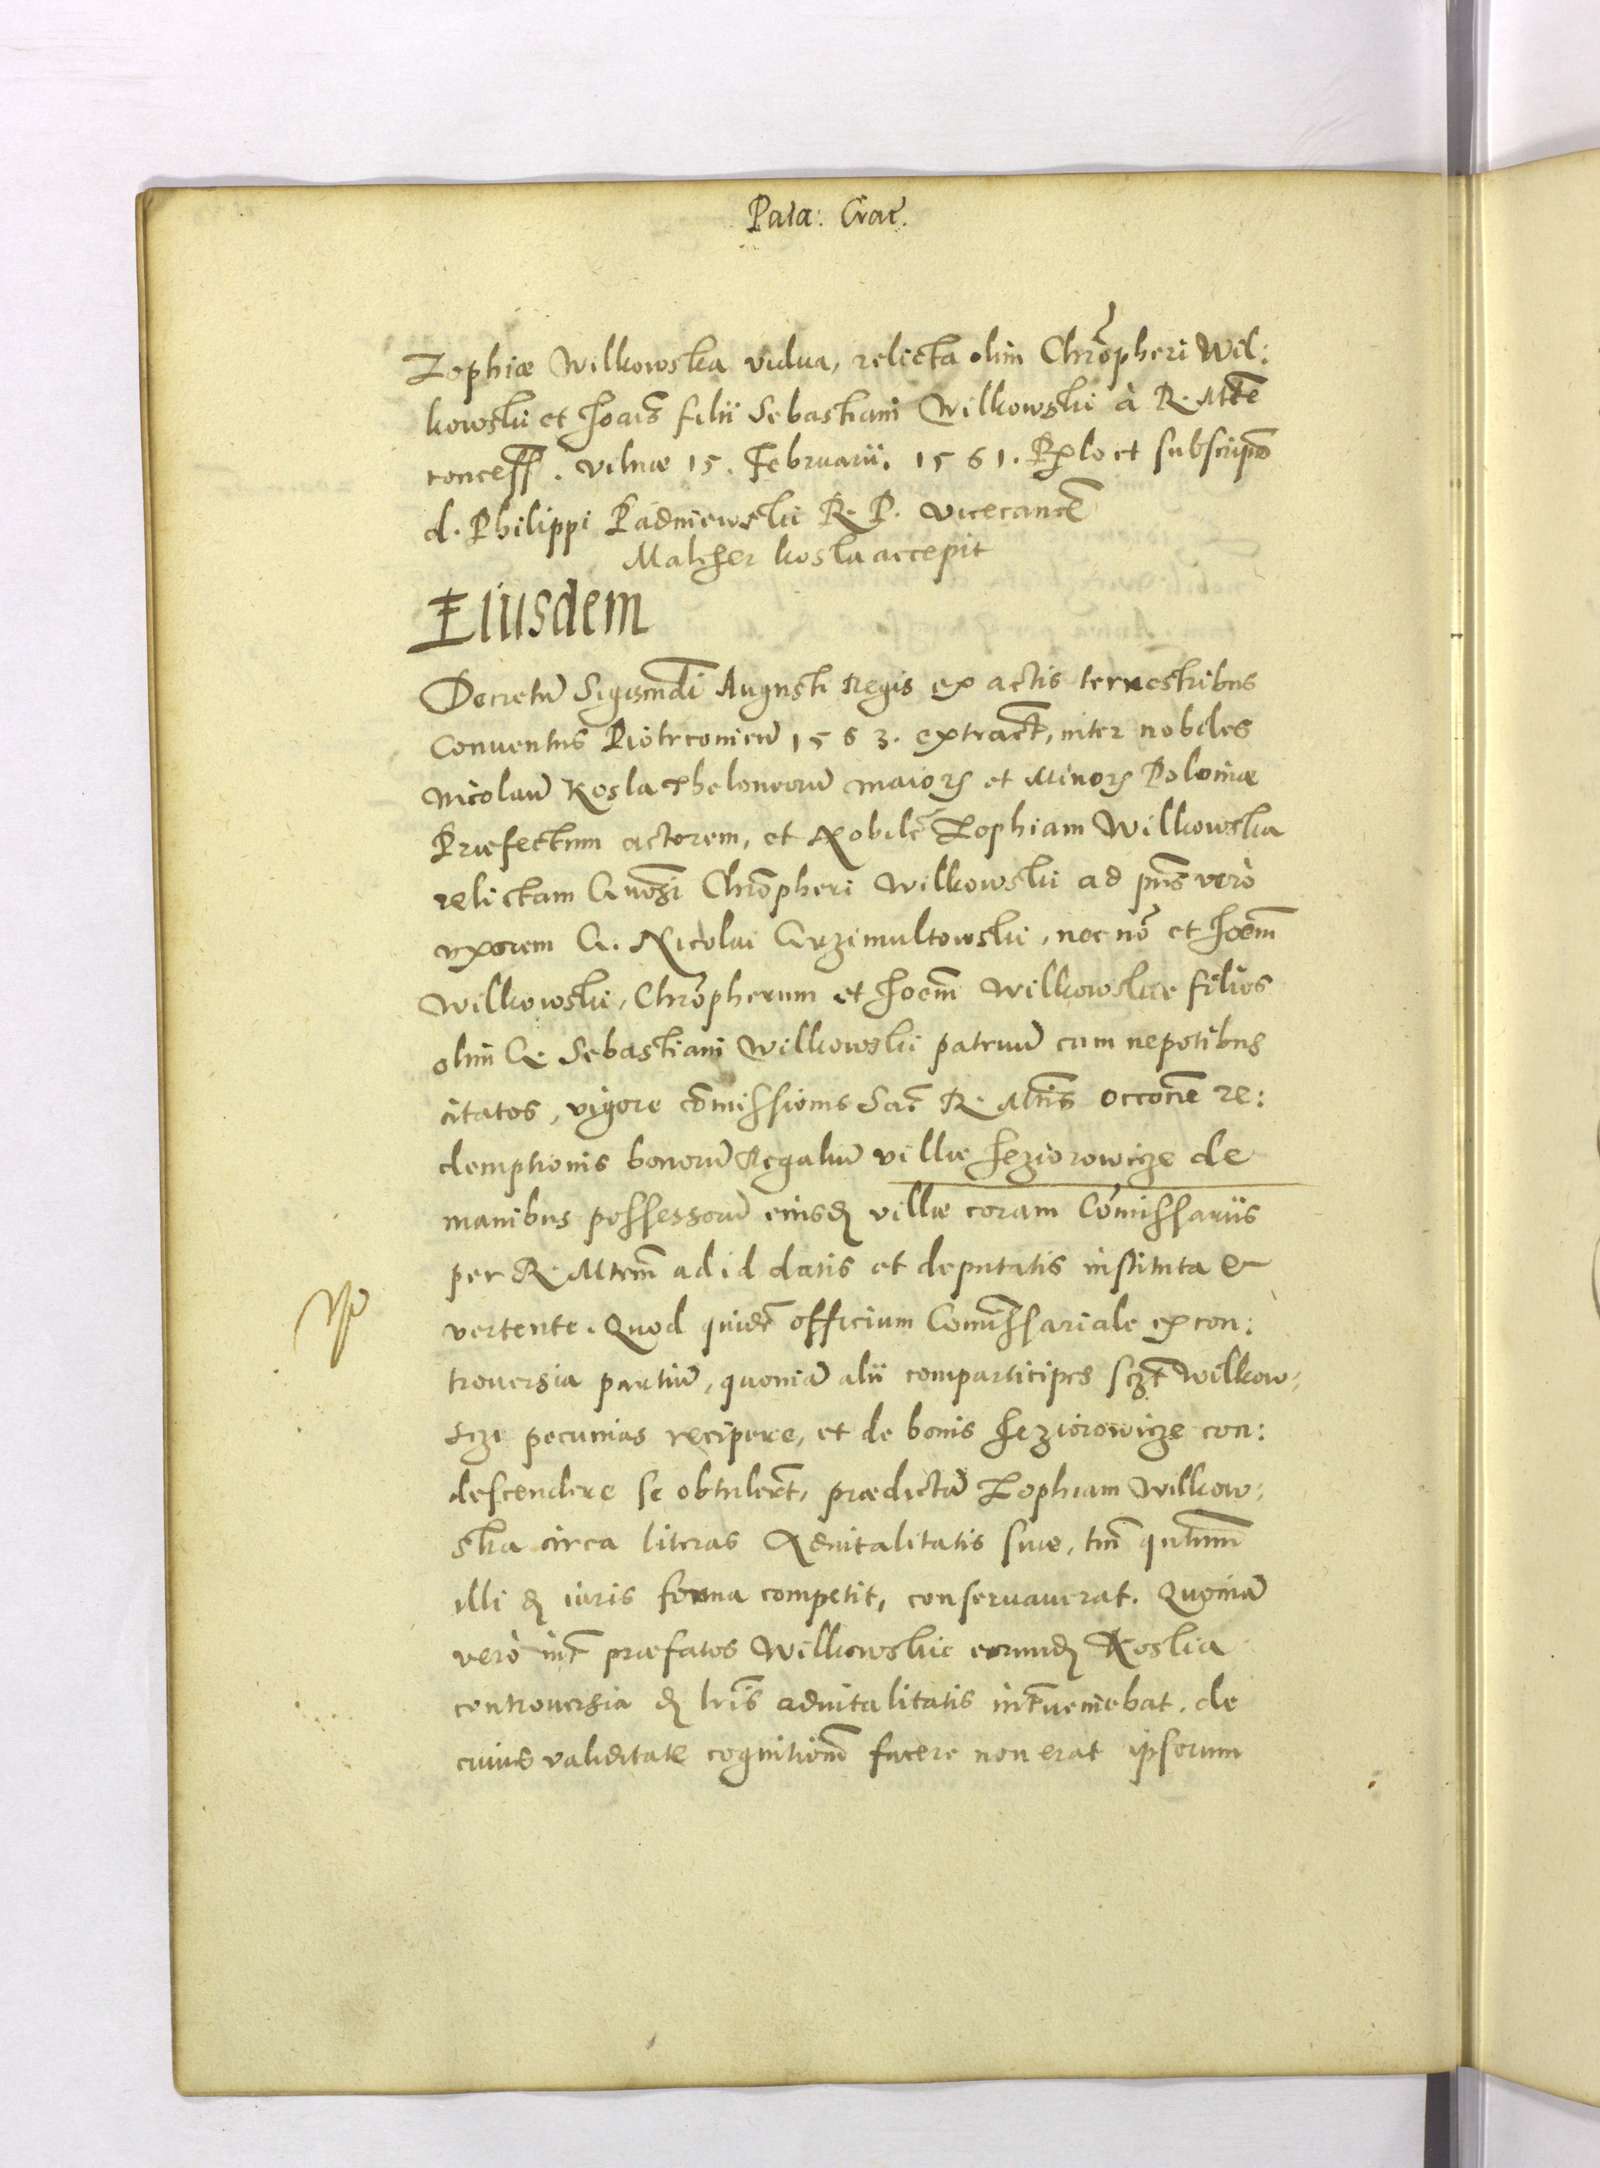 Pala: Crac̄.
Zophiæ Wilkowska vidua, relicta olim Chrōpheri Wil:
kowski et Joaīs filii Sebastiani Wilkowski à R. Mtē
concess. Vilnæ 15. Februarii. 1561. Sigllo et subscripōe
d. Philippi Padniewski R. P. vicecancē
Malcher kosla accepit
Eiusdem
Decretū Sigismūdi Augusti Regis ex actis terrestribus
Conuentus Piotrconieñ 1563. extract, inter nobiles
Nicolaū Kosla Theloneorū maioꝝ et Minoꝝ Poloniæ
Præfectum actorem, et Nobilē Zophiam Wilkowska
relictam Gnosī Chrōpheri Wilkowski ad pn̄s verò
uxorem G. Nicolai Grzimultowski, nec nō et Joem̄
Wilkowski, Chrōpherum et Joem̄ Wilkowskie filios
olim G. Sebastiani Wilkowski patruū cum nepotibus
citatos, vigore cōmissionis Sac̄ R. Mtis̄ occōne re:
demptionis bonorū Regaliū villæ Jeziorowicze de
manibus possessorū eiusdꝫ villæ coram Cōmissariis
per R. Mtem̄ ad id datis et deputatis instituta &
vertente. Quod quidē officium Commissariale ex con:
trouersia partiū, quoniā alii comparticipes sczt̄ Wilkow:
sczi pecunias recipere, et de bonis Jeziorowicze con:
descendere se obtulerūt, prædictā Zophiam Wilkow:
ska circa literas Aduitalitatis suæ, tm̄ qntum̄
illi dꝫ iuris forma competit, conseruauerat. Quoniā
verò int̄ præfatos Wilkowskie eorundꝫ Koslia
controuersia dꝫ lr̄is aduitalitatis int̄ueniebat. de
cuius validitate cognitionē facere non erat ipsorum